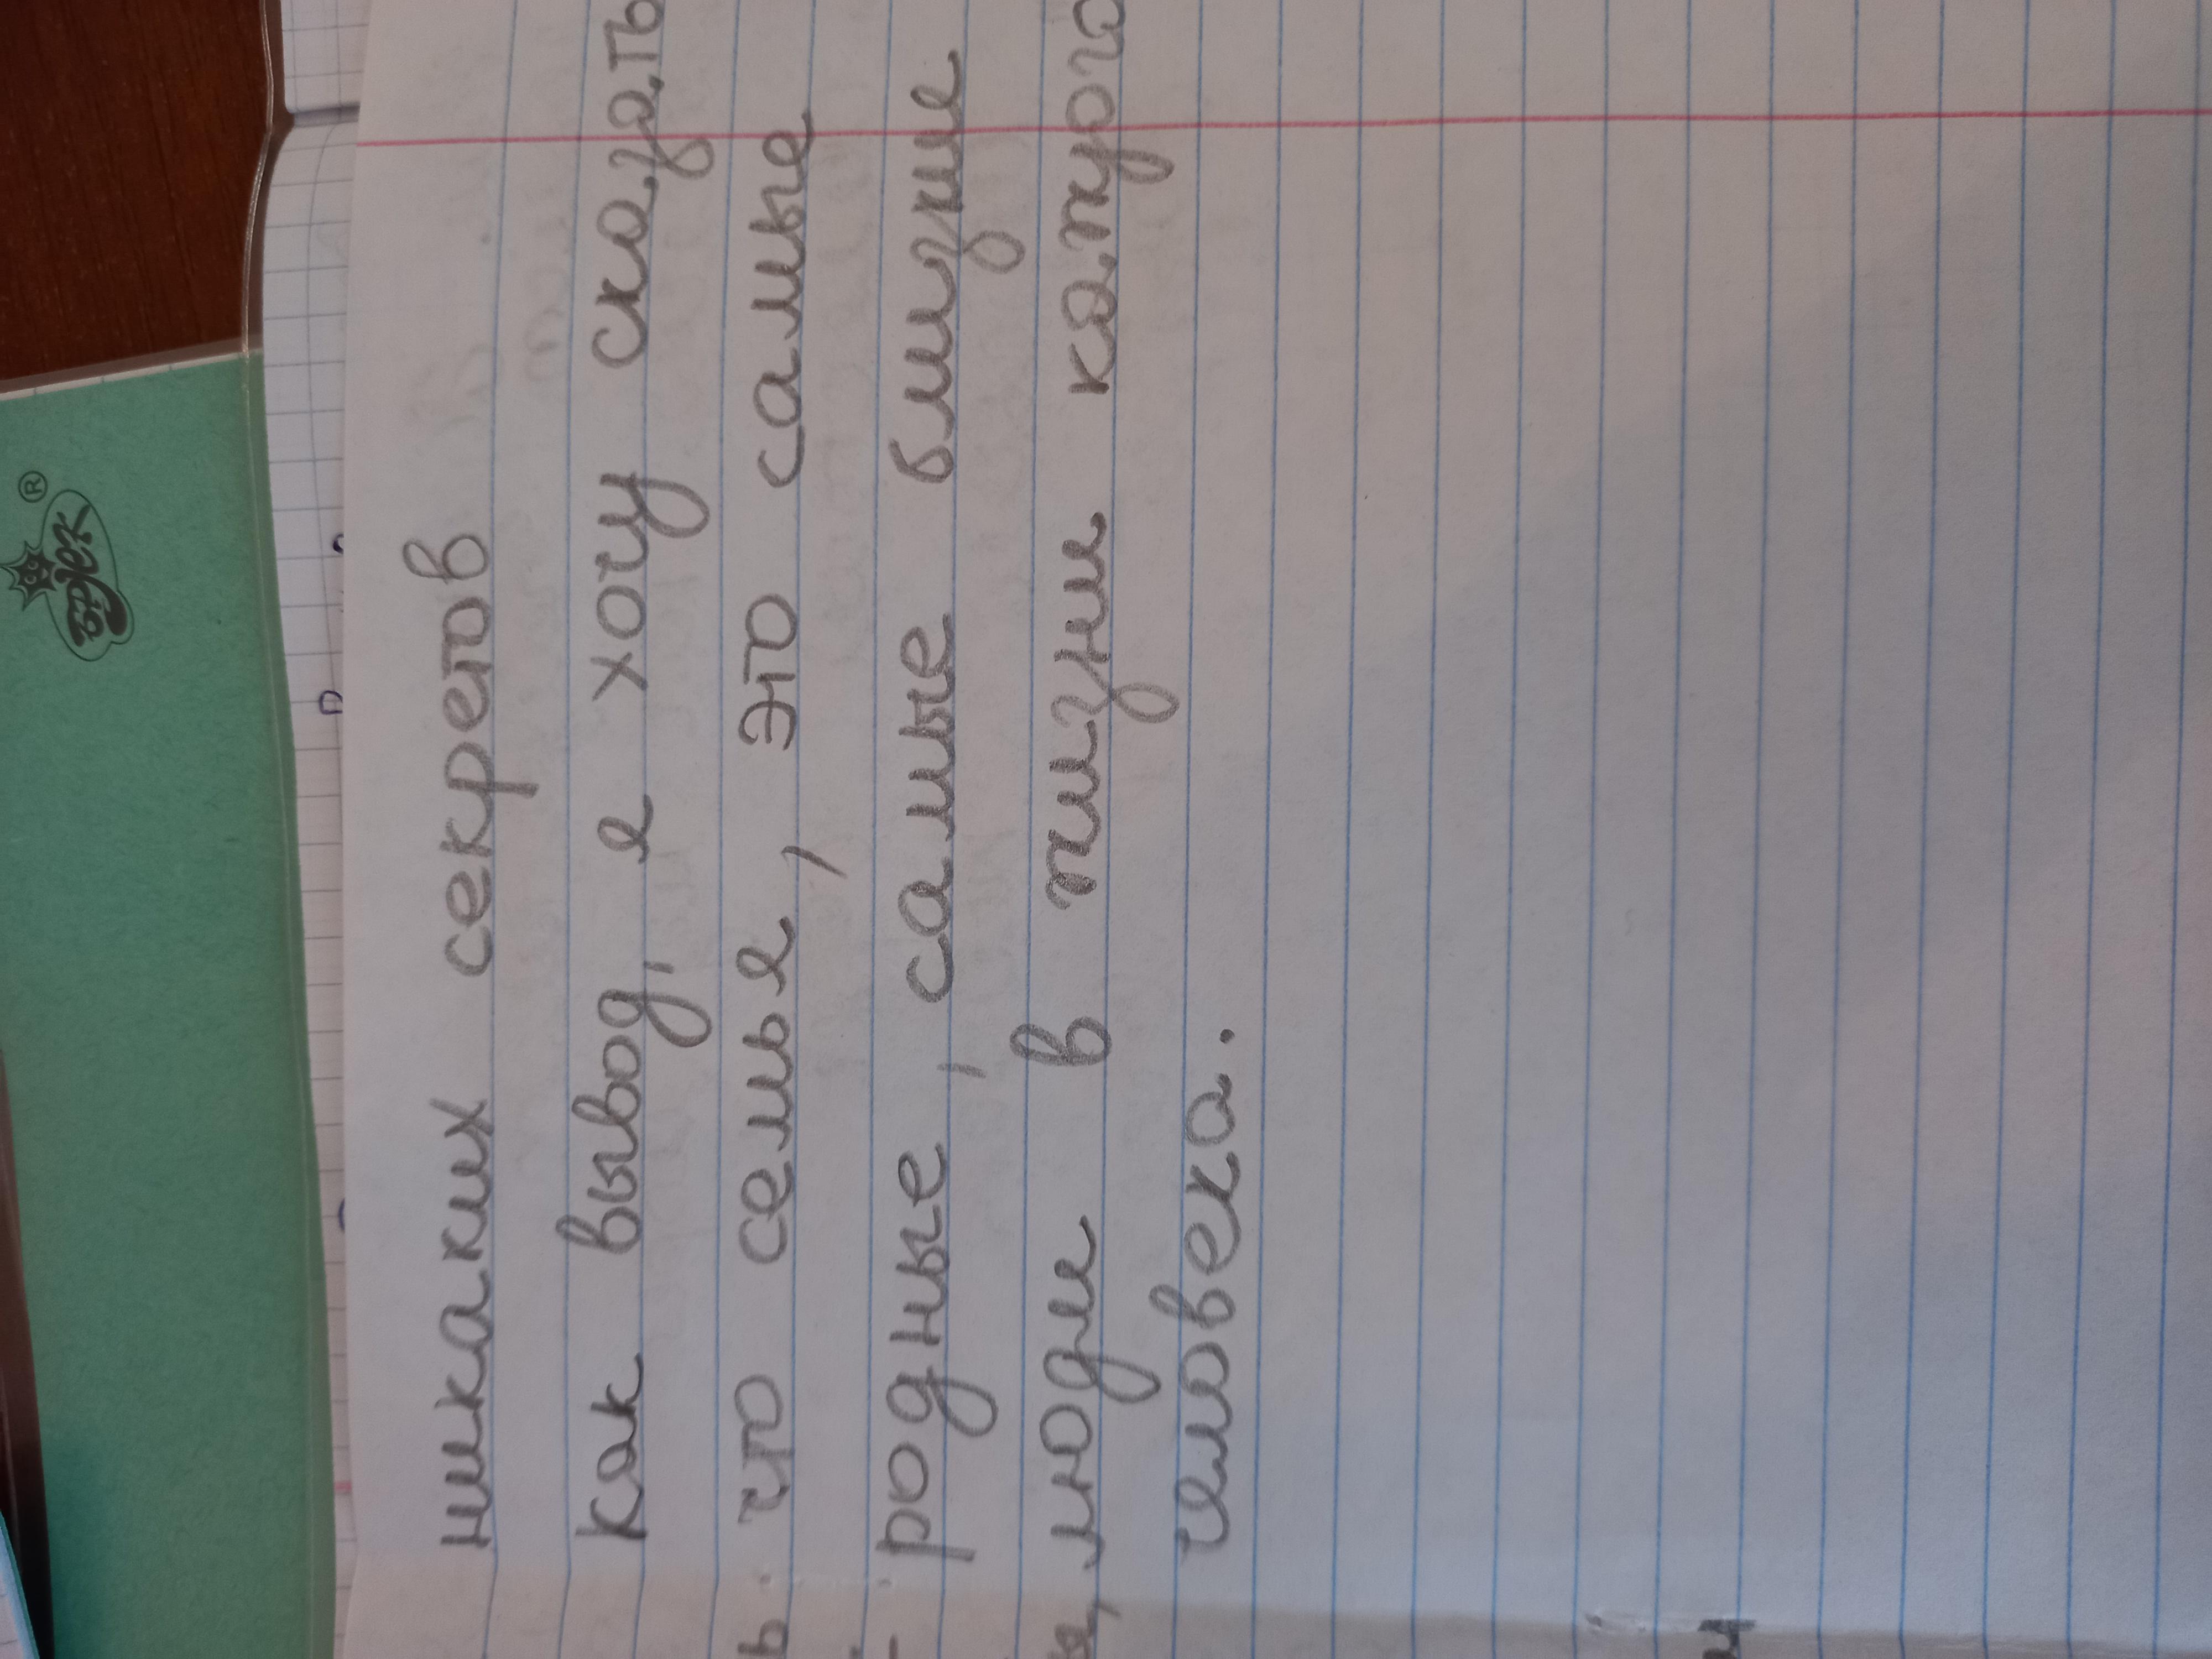 никаких секретов
Как вывод, я хочу сказать
что семья, это самые
родные, самые близкие
люди в жизни кажого
человека.